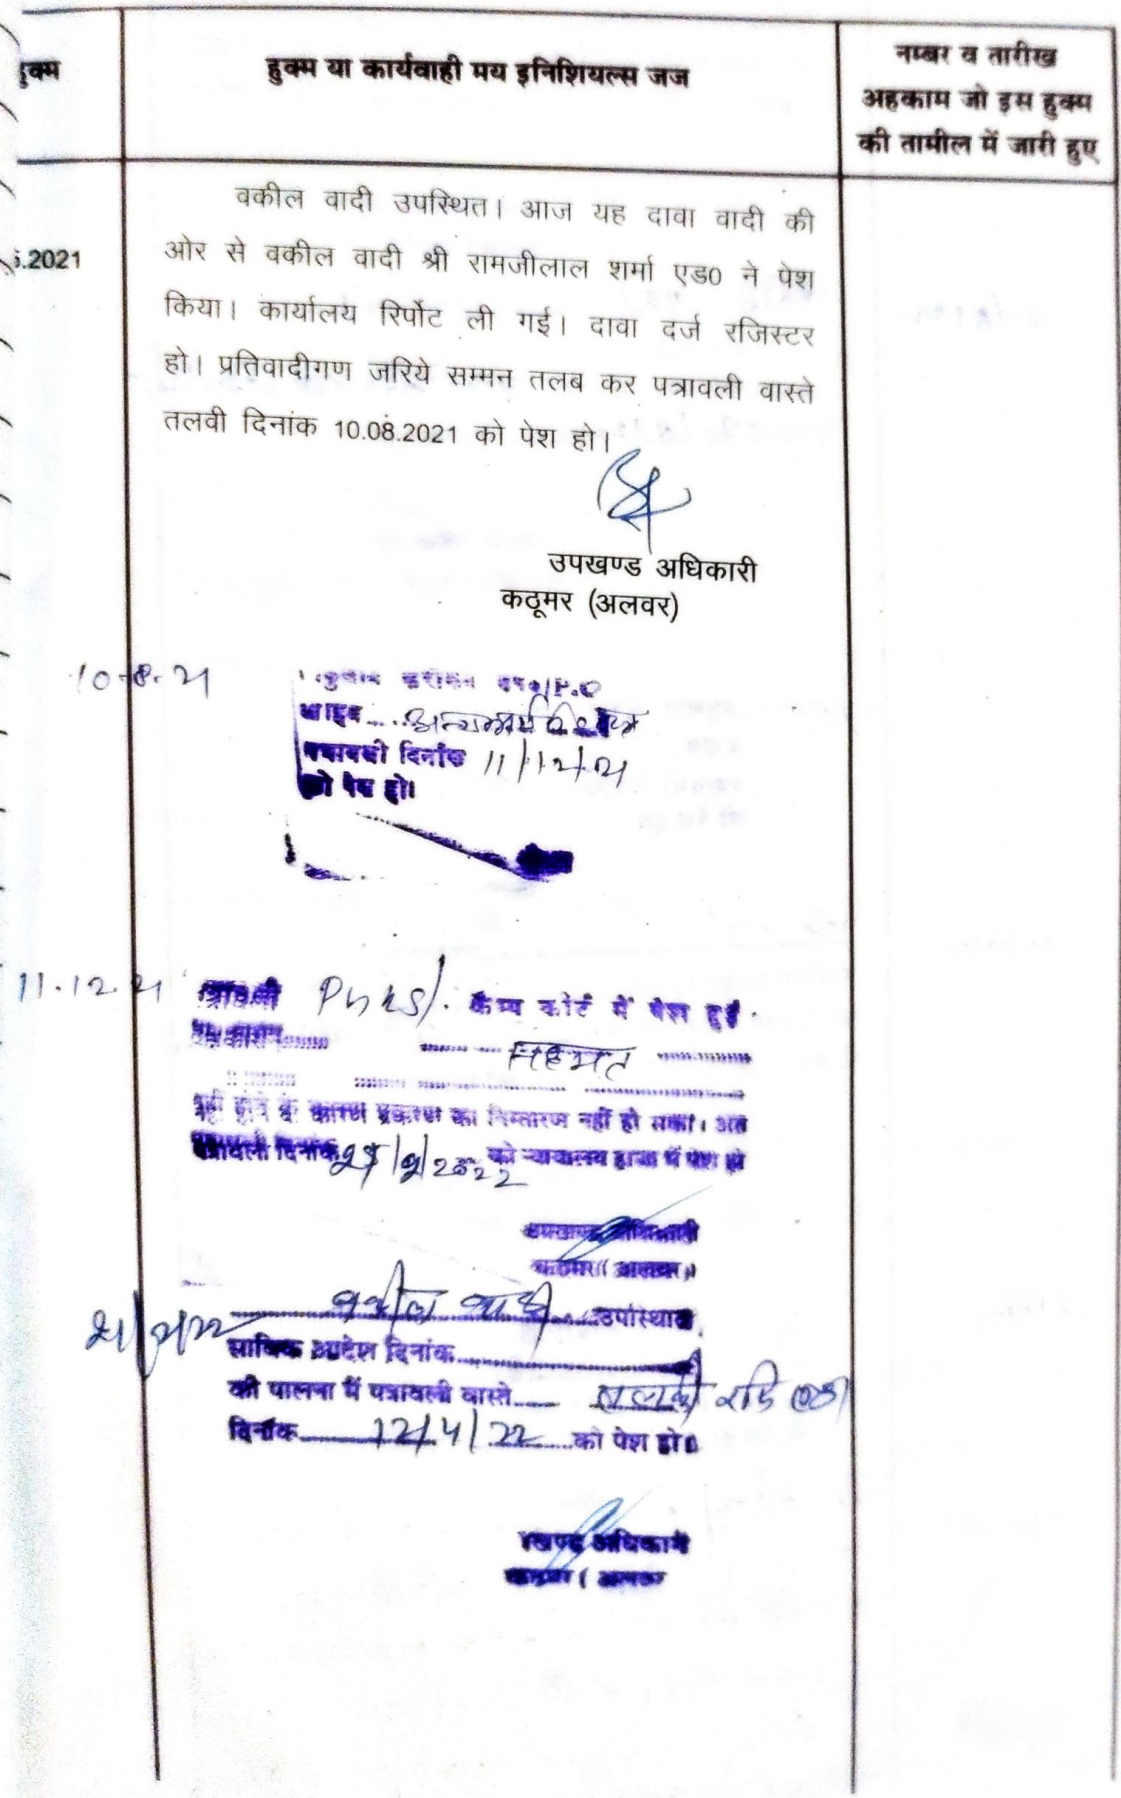 हुक्म
हुक्म या कार्यवाही मय इनिशियल्स जज
नम्बर व तारीख
अहकाम जो इस हुक्म
की तामील में जारी हुए
वकील वादी उपस्थित। आज यह दावा वादी की
.2021
ओर से वकील वादी श्री रामजीलाल शर्मा एड0 ने पेश
किया। कार्यालय रिर्पोट ली गई। दावा दर्ज रजिस्टर
हो। प्रतिवादीगण जरिये सम्मन तलब कर पत्रावली वास्ते
तलवी दिनांक 10.08.2021 को पेश हो।
उपखण्ड अधिकारी
कठूमर (अलवर)
10-8-21
पत्रावली दिनांक 11/12/21
को पेश हो।
11.12.21
पत्रावली कैम्प कोर्ट में पेश हुई
सहमत
नहीं होने के कारण प्रकरण का निस्तारण नहीं हो सका। अत
पत्रावली दिनांक 2022 को न्यायालय हाजा में पेश हो
उपखण्ड अधिकारी
कठूमर (अलवर)
वकील वादी उपस्थित
साबिक आदेश दिनांक
की पालना में पत्रावली वास्ते तलवी
दिनांक 12/4/22 को पेश हो।
खण्ड अधिकारी
कठूमर (अलवर